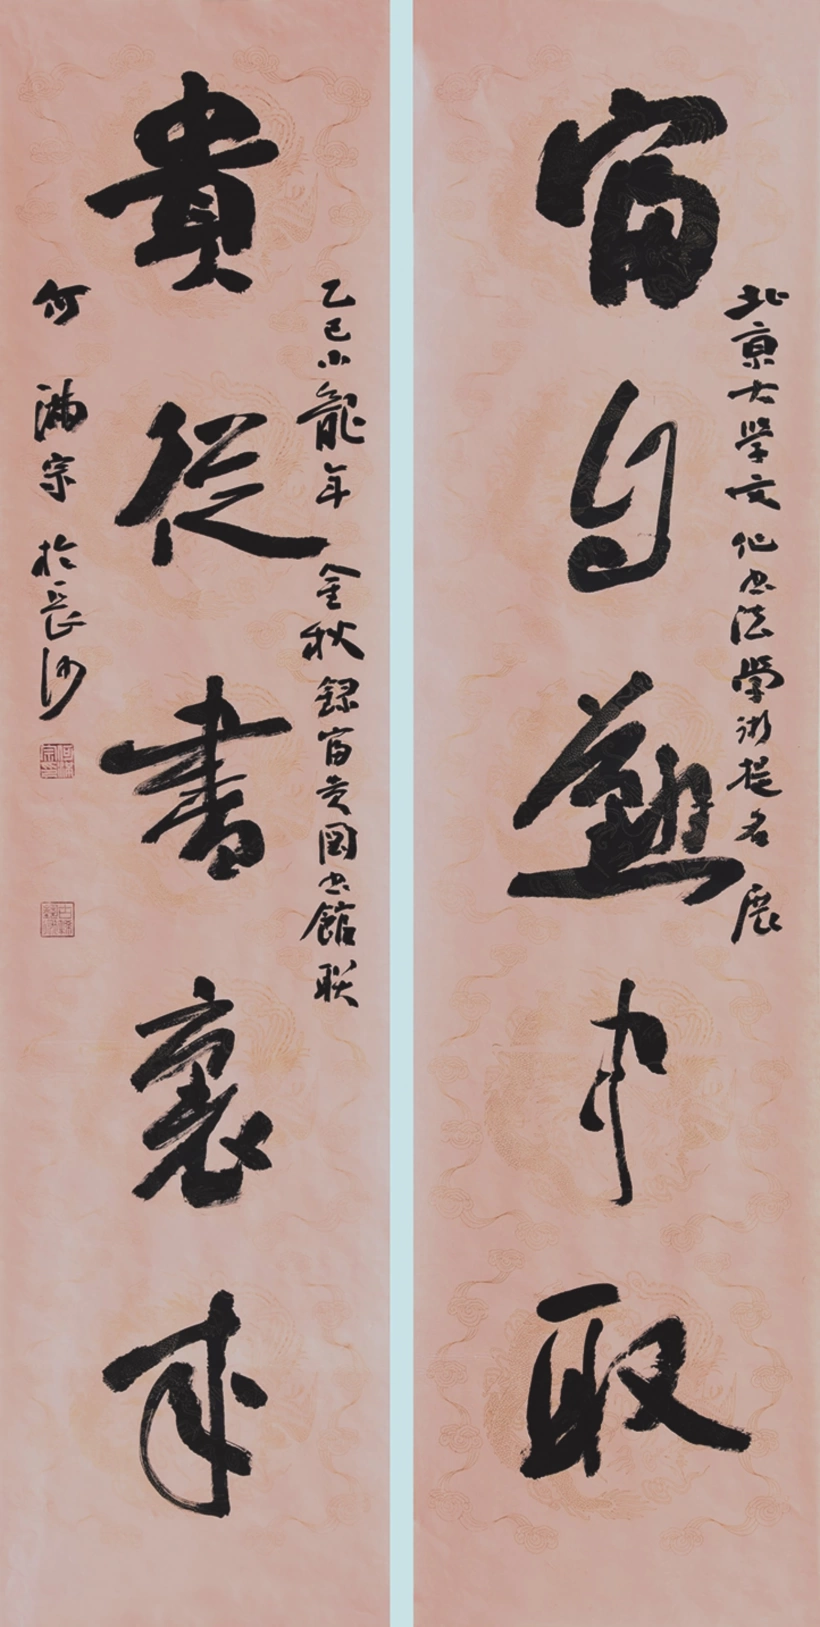 北京大學文化书法學術提名展
富自勤中取
乙巳小龍年 金秋錄富贵图书館联
貴從書裏来
何滿宗於長沙